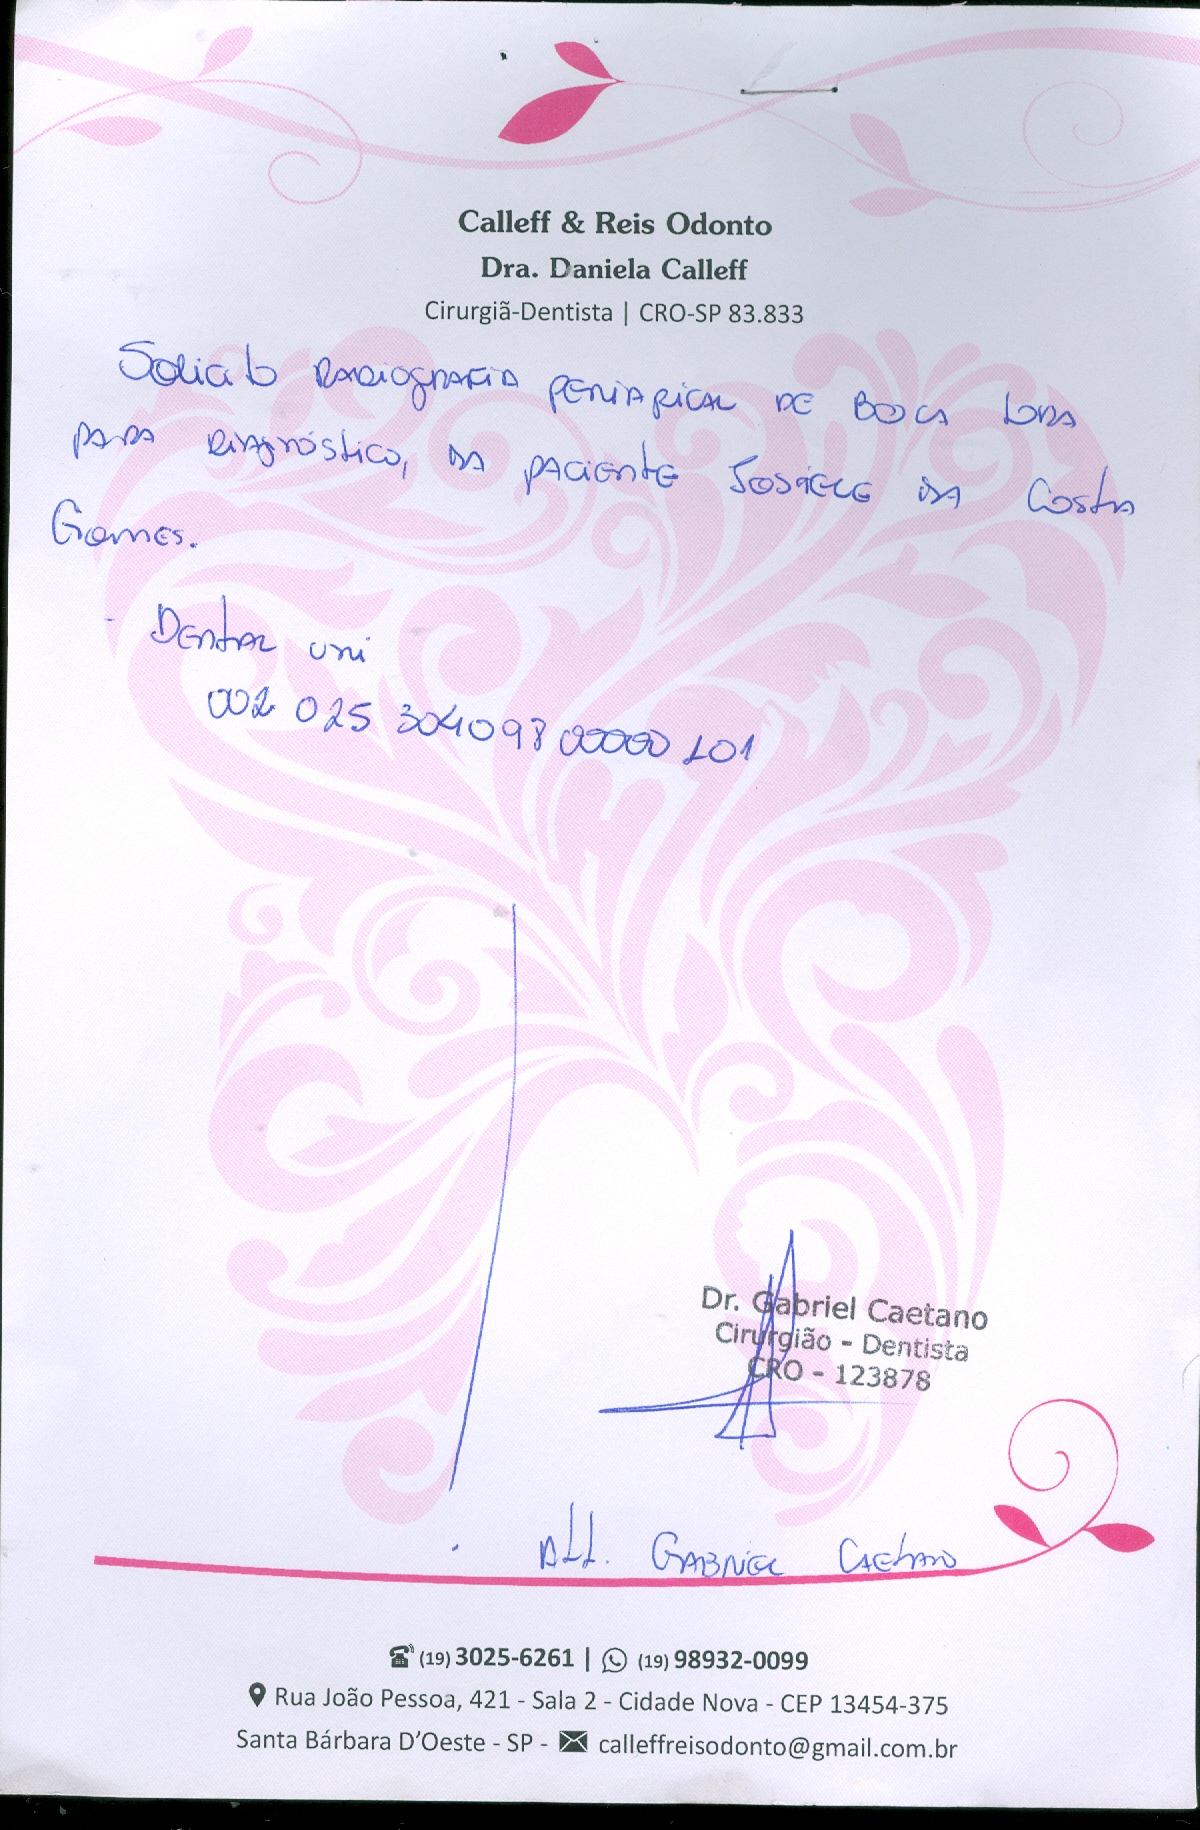 Calleff & Reis Odonto
Dra. Daniela Calleff
Cirurgiã-Dentista | CRO-SP 83.833
Solicito Radiografia Periapical de Boca toda
para diagnóstico, da paciente Josiele da Costa
Gomes.
- Dental uni
002 025 304098 00000 101
Dr. Gabriel Caetano
Cirurgião - Dentista
CRO - 123878
Att. Gabriel Caetano
(19) 3025-6261 | (19) 98932-0099
Rua João Pessoa, 421 - Sala 2 - Cidade Nova - CEP 13454-375
Santa Bárbara D'Oeste - SP - calleffreisodonto@gmail.com.br